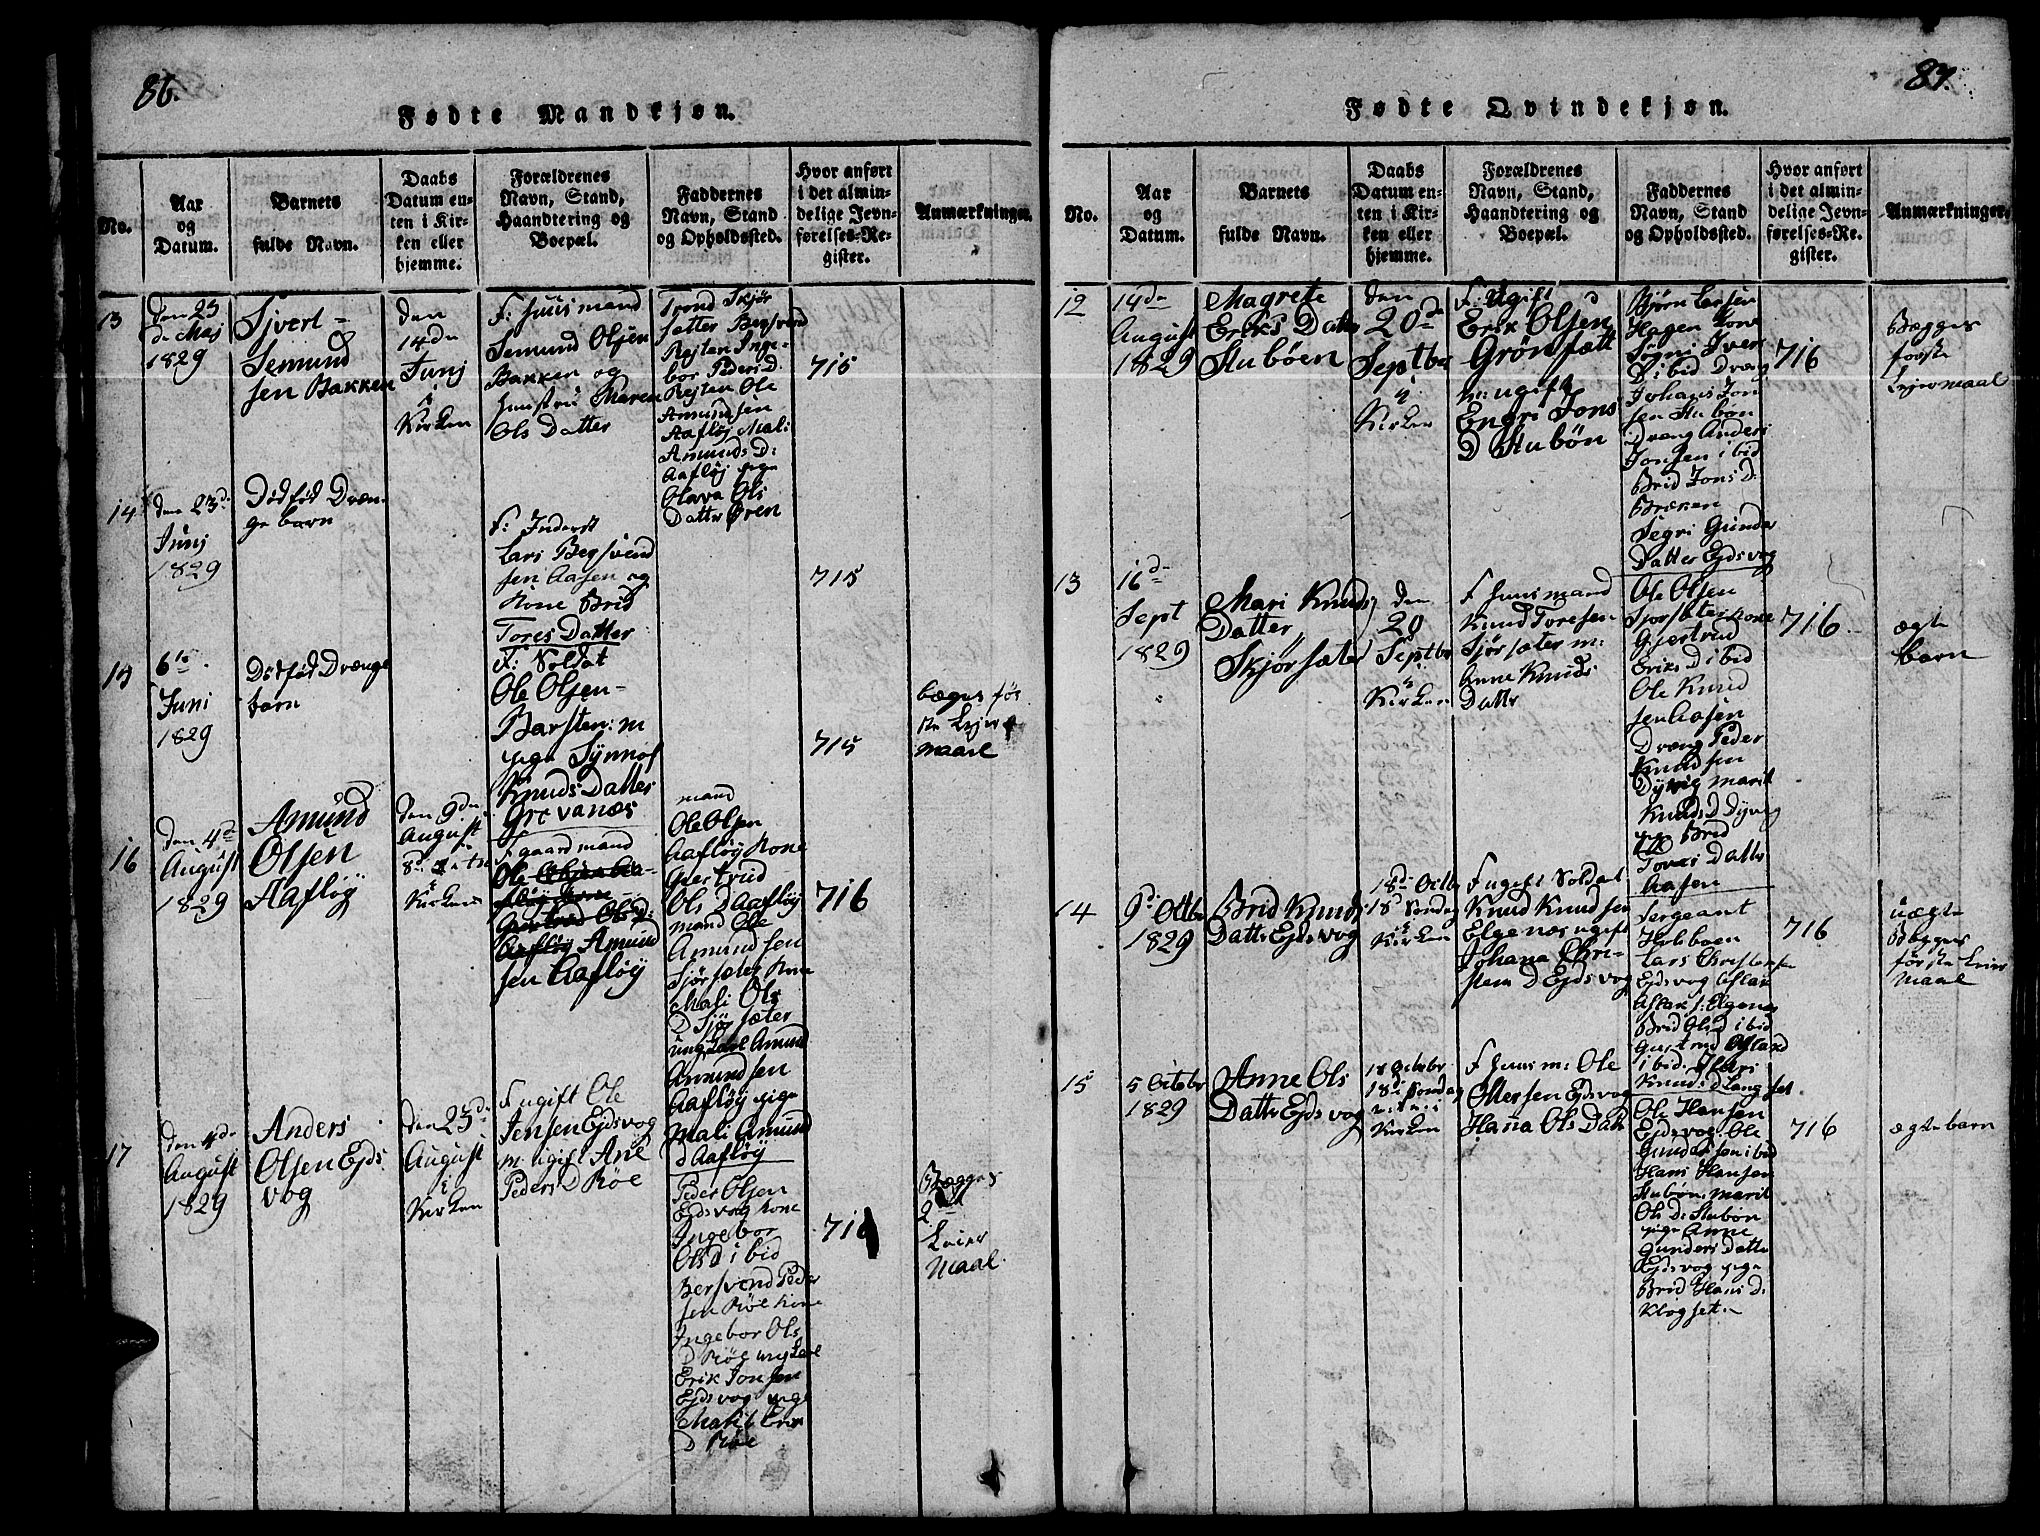 86.
Fødte Mandkjøn.
No.
Aar
og
Datum.
Barnets
fulde Navn.
Daabs
Datum en-
ten i Kir-
ken eller
hjemme.
Forældrenes
Navn, Stand,
Haandtering og
Boepæl.
Faddernes
Navn, Stand
og Opholdssted.
Hvor anført
i det almin-
delige Jevn-
førelses-Re-
gister.
Anmærkninger.
13
den 23
de Maj
1829
Sjverl-
Semund
sen Bakken
den
14de
Junj
i
Kirken
F: Huusmand
Semund Olsen
Bakken og
Huustrue Maren
Ols Datter
Trond Skjør
sætter Begsvend
Rejten Inge-
bor Peders D:
Rejten Ole
Amundsen
Aafløj Mali
Amunds D:
Aafløj pige
Olava Ols
Datter Øren
715
14
den 23de
Junj
1829
Dødfød Dren-
ge barn
F: Inderst
Lars Begsvend
sen Aasen og
Kone Brid
Tores Datter
715
15
6te
Juni
1829
Dødfød Drænge
barn
F: Soldat
Ole Olsen-
Barsten: m
pige Synnof
Knuds Datter
Grevanæs
715
bæges før
ste Lejer
maal
16
den 4de
August
1829
Amund
Olsen
Aafløÿ
den 9de
August
8de
i
Kirken
F gaardmand
Ole
Amund
sen Aafløÿ
mand
Ole Olsen
Aafløj Kone
Giertrud
Ols D Aafløÿ
mand Ole
Amundsen
Sjørsæter Kone
Mali Ols
D Sjørsæter
ungkarl Amund
Amundsen
Aafløÿ pige
Mali Amund
D Aafløÿ
716
17
den 4de
August
1829
Anders
Olsen Ejds
vog
den 23de
August
i
Kirken
F ugift Ole
Jensen Ejdsvog
m ugift Ane
Peders D Røe
Peder Olsen
Ejdsvog Kone
Ingebor
Ols D i bid
Bersvend Peder
sen Røe Kone
Ingebor Ols
D Røe ungkarl
Erik Jonsen
Ejdsvog pige
D Røe
716
Bægges
2
Leier
Maal
87.
Fødte Qvindekjøn.
No.
Aar
og
Datum.
Barnets
fulde Navn.
Daabs
Datum en-
ten i Kir-
ken eller
hjemme.
Forældrenes
Navn, Stand,
Haandtering og
Boepæl.
Faddernes
Navn, Stand
og Opholdssted.
Hvor anført
i det almin-
delige Jevn-
førelses-Re-
gister.
Anmærkninger.
12
14de
August
1829
Magrete
Eriks Datter
Stubøen
den
20de
Septbr
i
Kirken
F: Ugift
Erik Olsen
Grønsætt
m: ugift
Engri Jons
D Stubøn
Bjørn Larsen
Hagen Kone
Sogni Iver
D i bid Dræng
Johans Jon
sen Stubøn
Dræng Anders
Jonsen i bid
Brid Jons D:
Bræken
Segri Gunder
Datter Ejdsvog
716
Bægges
første
Lejermaal
13
16de
Sept
1829
Mari Knuds
Datter
Skjørsæter
den
20
Septbr
i
Kirken
F Huusmand
Knud Toresen
Sjørsæter m:
Anne Knuds
Datter
Ole Olsen
Sjorsæter Kone
Gjertrud
Eriks D i bid
Ole Knud
sen Aasen
Dræng Peder
Knudsen
Dyvig Marit
Knuds D Dyvig
pige Brid
Tores Datter
Aasen
716
ægte
barn
14
9de Octbr
1829
Brid Knuds
Datter Ejdsvog
18de Octbr
18de Søndag
i
Kirken
F ugift Soldat
Knud Knudsen
Elgenæs ugift
Johana Chri-
stens D Ejdsvog
Sergeant
Holsboen
Lars Christensen
Ejdsvog Aslak
Aslak s: Elgenæs
Brid Ols D i bid
i bid:
Knuds D Langset
716
uægte
Bbægges
første Leier
Maal
15
5 Octobr
1829
Anne Ols
Datter Ejdsvog
18 Octobr
18de Søndag
Kirken
F Huusm: Ole
Ottersen Ejdsvog
Hana Ols Datter
Ole Hansen
Ejdsvog Ole
Gundersen i bid
Hans Hansen
Stubøn Marit
Ols D: Stubøn
pige Anne
Gunders Datter
Ejdsvog pige
Brid Hans D:
Klogset
716
ægte barn